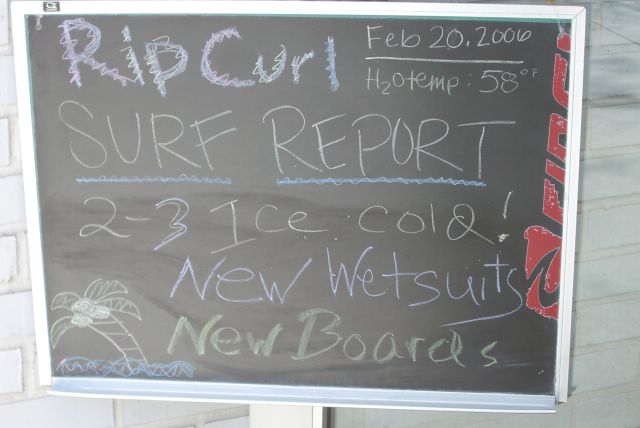 Rip Curl
Feb 20.2006
H2O temp: 58°F
SURF REPORT
2-3 Ice cold!
New Wetsuits
New Boards